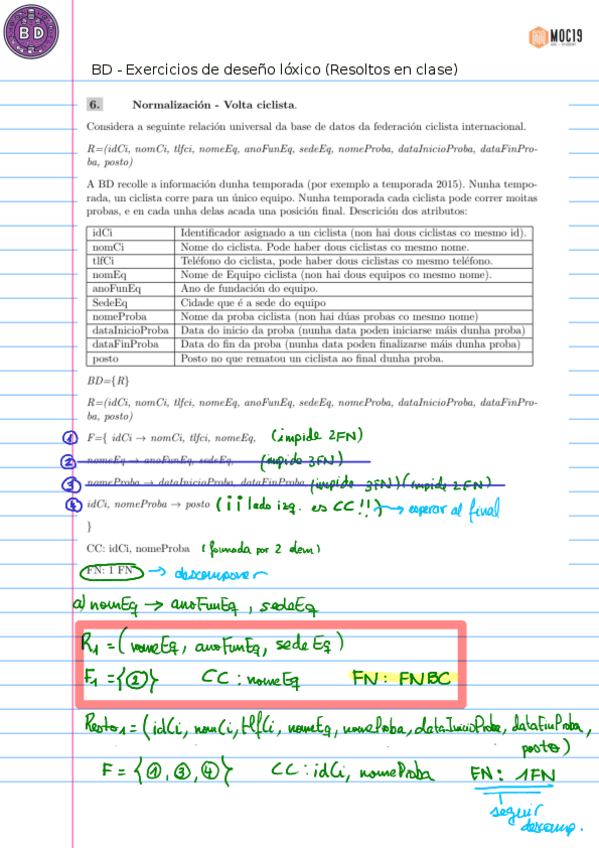 BD
MOC19
BD - Exercicios de deseño lóxico (Resoltos en clase)
6. Normalización - Volta ciclista.
Considera a seguinte relación universal da base de datos da federación ciclista internacional.
R=(idCi, nomCi, tlfci, nomeEq, anoFunEq, sedeEq, nomeProba, dataInicioProba, dataFinPro-
ba, posto)
A BD recolle a información dunha temporada (por exemplo a temporada 2015). Nunha tempo-
rada, un ciclista corre para un único equipo. Nunha temporada cada ciclista pode correr moitas
probas, e en cada unha delas acada una posición final. Descrición dos atributos:
idCi Identificador asignado a un ciclista (non hai dous ciclistas co mesmo id).
nomCi Nome do ciclista. Pode haber dous ciclistas co mesmo nome.
tlfCi Teléfono do ciclista, pode haber dous ciclistas co mesmo teléfono.
nomEq Nome de Equipo ciclista (non hai dous equipos co mesmo nome).
anoFunEq Ano de fundación do equipo.
SedeEq Cidade que é a sede do equipo
nomeProba Nome da proba ciclista (non hai dúas probas co mesmo nome)
dataInicioProba Data do inicio da proba (nunha data poden iniciarse máis dunha proba)
dataFinProba Data do fin da proba (nunha data poden finalizarse máis dunha proba)
posto Posto no que rematou un ciclista ao final dunha proba.
BD={R}
R=(idCi, nomCi, tlfci, nomeEq, anoFunEq, sedeEq, nomeProba, dataInicioProba, dataFinPro-
ba, posto)
① F={ idCi → nomCi, tlfci, nomeEq, (impide 2FN)
② nomeEq → anoFunEq, sedeEq, (impide 3FN)
③ nomeProba → dataInicioProba, dataFinProba (impide 3FN)(impide 2FN)
④ idCi, nomeProba → posto (¡¡lado izq. es CC!!) → esperar al final
}
CC: idCi, nomeProba (formada por 2 elem)
FN: 1 FN → descomponer
a) nomEq → anoFunEq, sedeEq
R1 = (nomeEq, anoFunEq, sedeEq)
F1 = {②} CC: nomeEq FN: FNBC
Resto1 = (idCi, nomCi, tlfCi, nomeEq, nomeProba, dataInicioProba, dataFinProba,
posto)
F = {①, ③, ④} CC: idCi, nomeProba FN: 1FN
seguir
descomp.